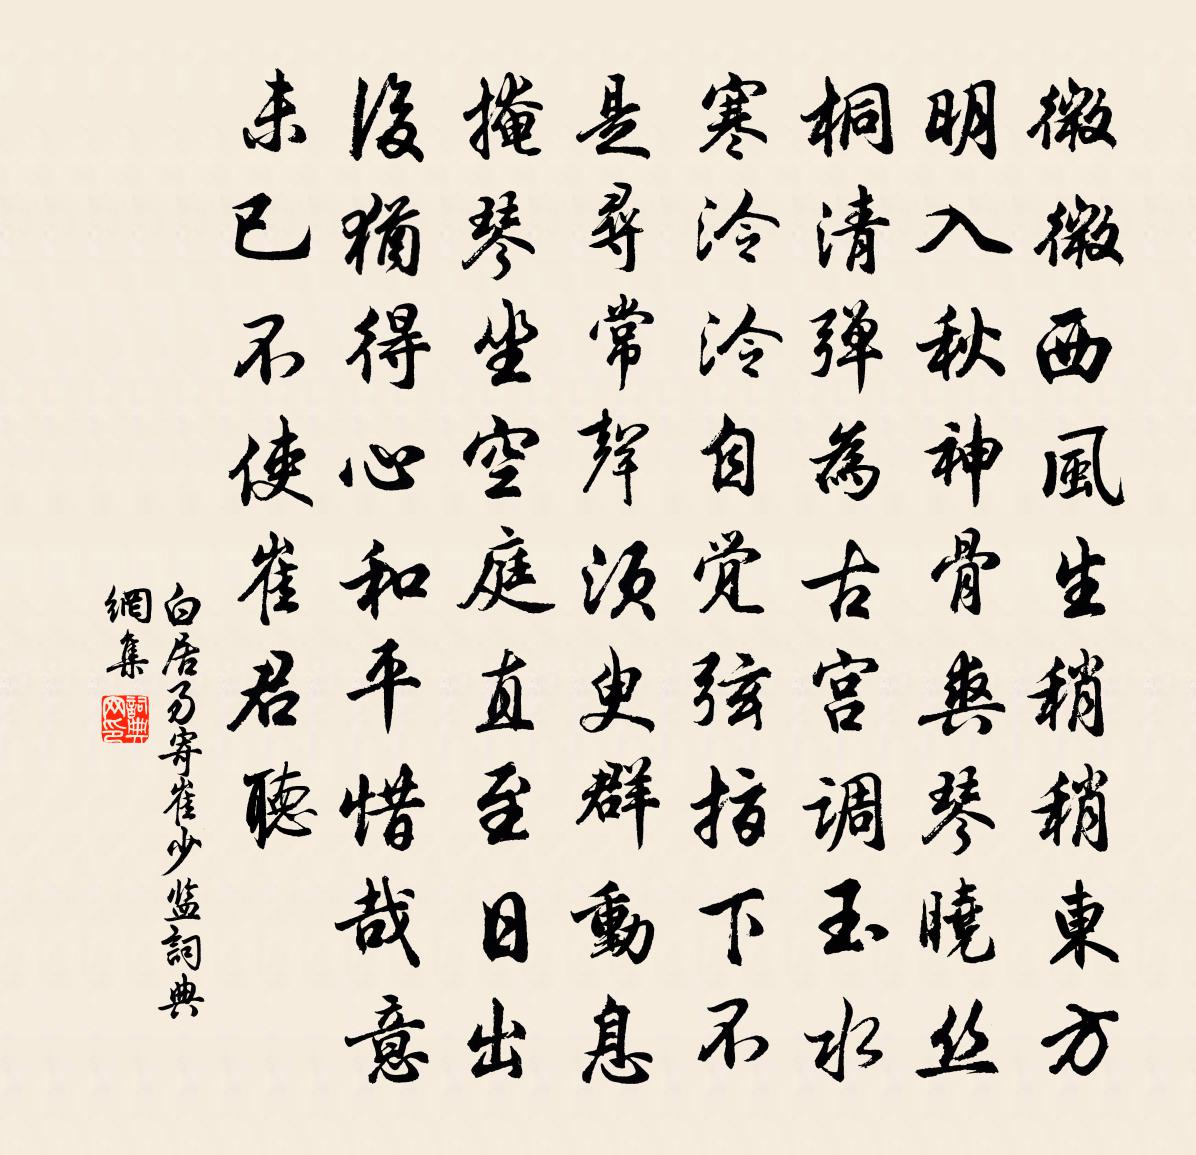 微微西風生稍稍東方
明入秋神骨爽琴曉丝
桐清弹為古宫调玉水
寒泠泠自觉弦指下不
是尋常聲须臾群動息
掩琴坐空庭直至日出
後猶得心和平惜哉意
未已不使崔君聽
白居易寄崔少监詞典
網集
詞典网印